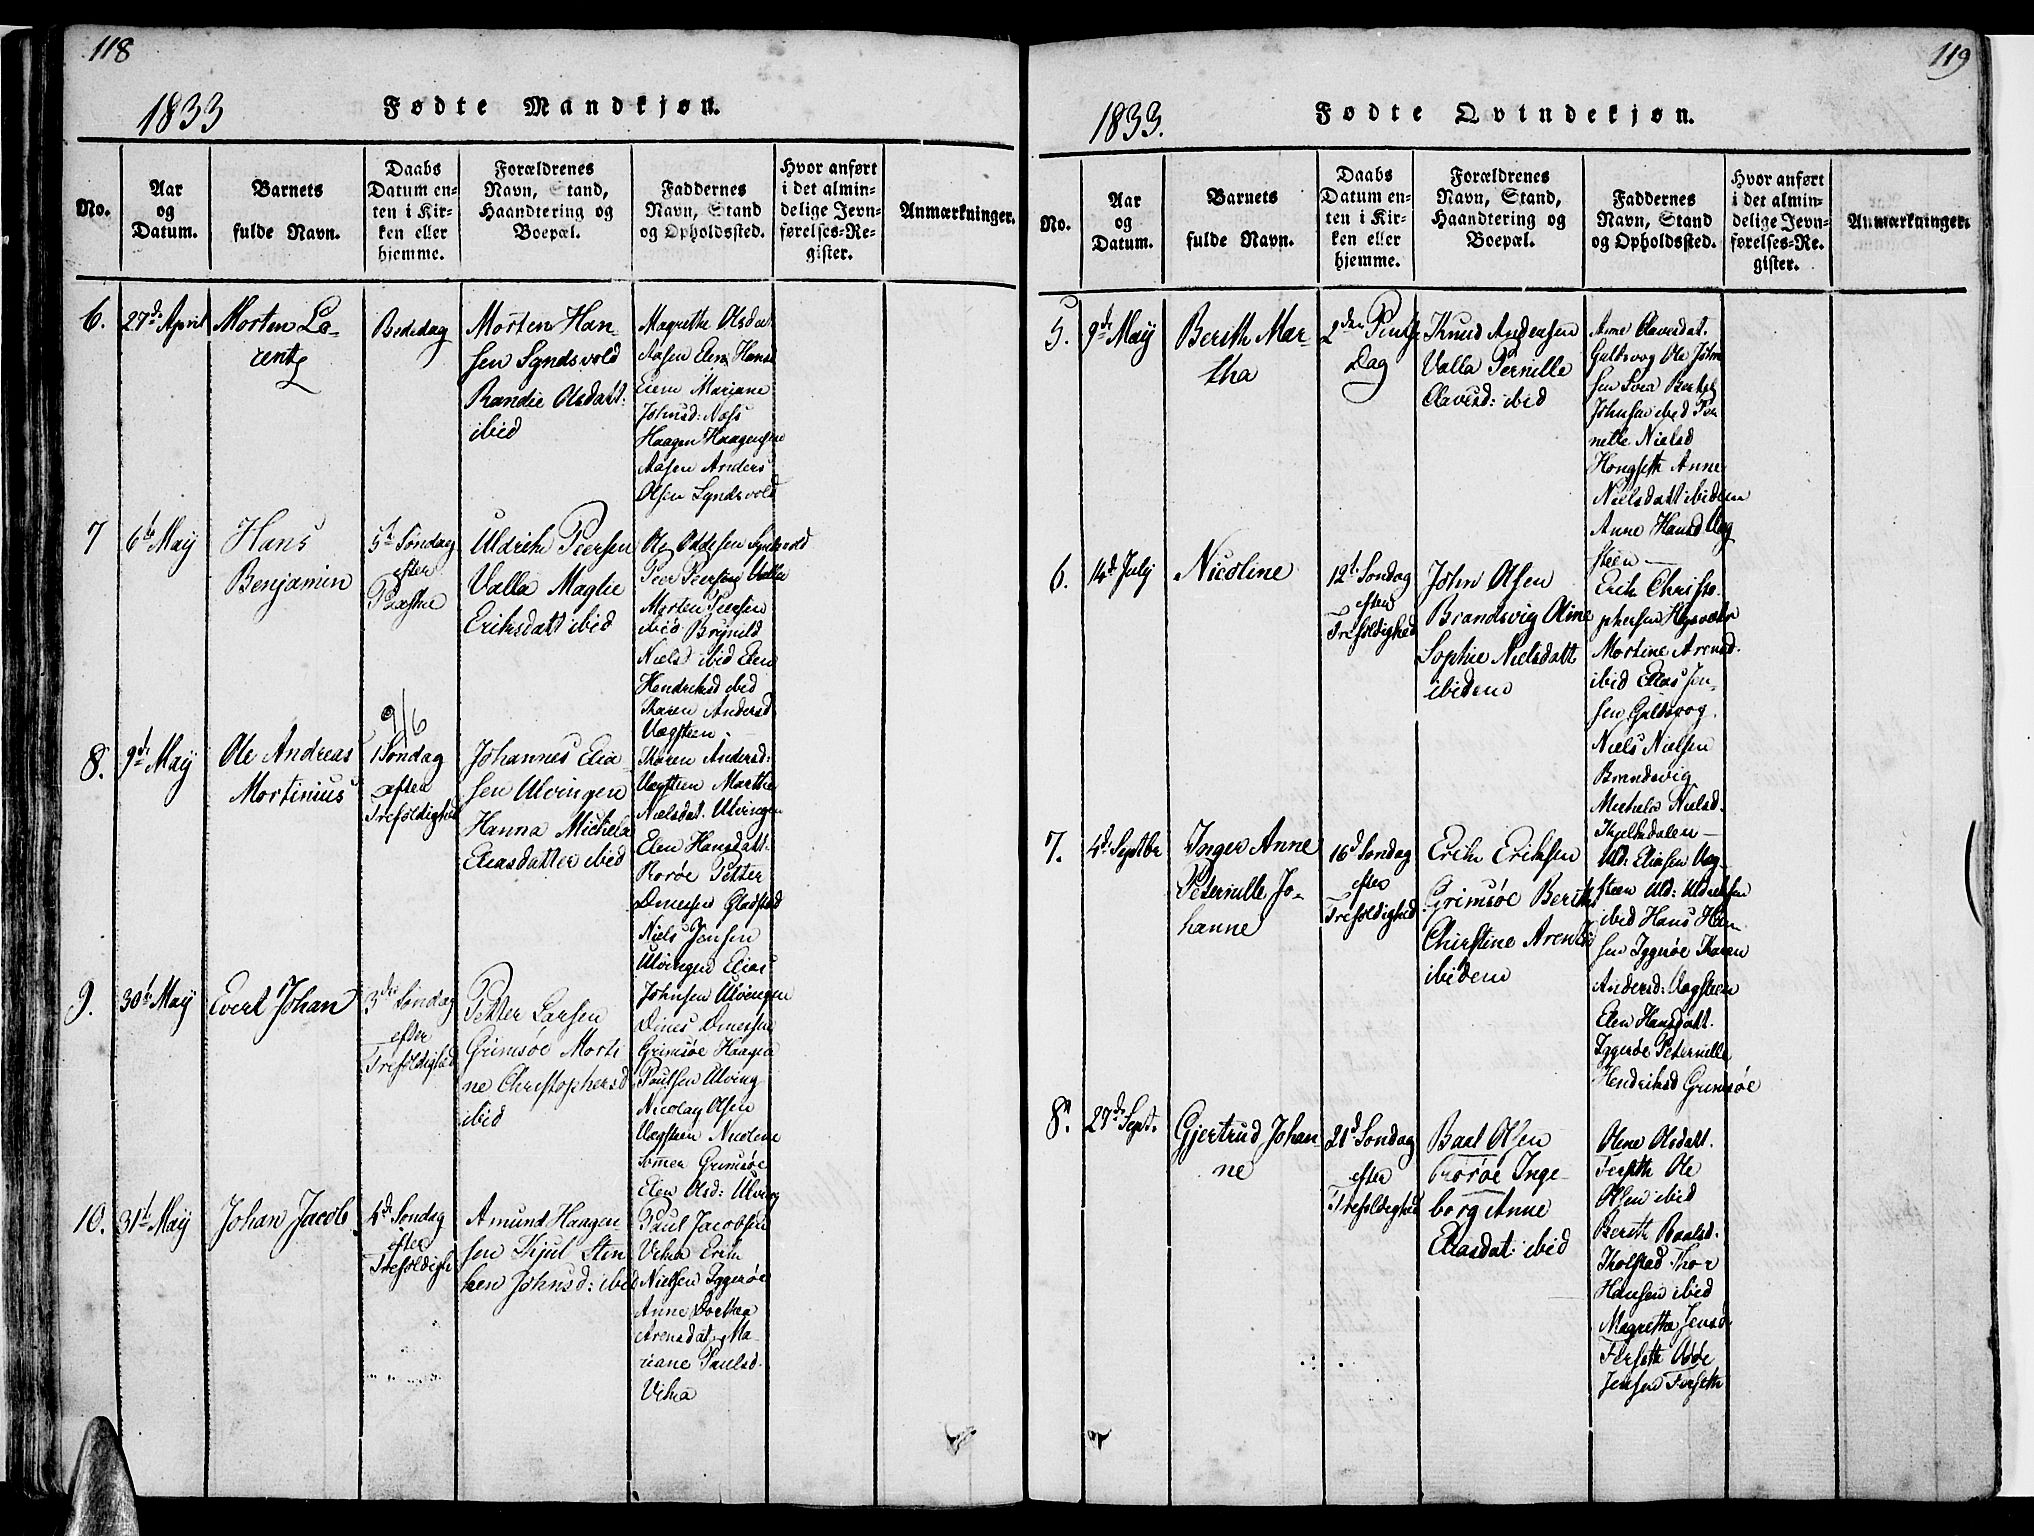 118
1833
Fødte Mandkjøn.
No.
Aar
og
Datum.
Barnets
fulde Navn.
Daabs
Datum en-
ten i Kir-
ken eller
hjemme.
Forældrenes
Navn, Stand,
Haandtering og
Boepæl.
Faddernes
Navn, Stand
og Opholdssted.
Hvor anført
i det almin-
delige Jevn-
førelses-Re-
gister.
Anmærkninger.
6.
27de April
Morten La-
rentz
Bededag
Morten Han-
sen Syndsvold
Randie Olsdatt:
ibid
Magrethe Olsdat
Aasen Elen Hansd
Eiem Mariane
Johnsd: Næss
Haagen Haagensen
Aasen Anders
Olsen Syndsvold
7
6te May
Hans
Benjamin
5te Søndag
efter
Paaske
Uldrich Peersen
Valla Maglie
Eriksdatt ibid
Ole Oddesen Syndsvold
Peer Peersen Valla
Morten Peersen
ibid Brynild
Nielsd ibid Elen
Hendriksd ibid
Karen Andersd
Vægsteen.
8.
9de May
Ole Andreas
Mortinius
9/6
1 Søndag
efter
Trefoldighed
Johannes Elia-
sen Ulvingen
Hanna Michela
Eliasdatter ibid
Karen Andersd:
Vægsteen Marthe
Nielsdat. Ulvingen
Elen Hansdatt.
Rorøe Petter
Dinessen Gladstad
Niels Jensen
Ulvingen Elias
9.
30te May
Evert Johan
3die Søndag
efter
Trefoldighed
Petter Larsen
Grimsøe Morti
ne Christophersd
ibid
Johnsen Ulvingen
Dines Dinessen
Grimsøe Haagen
Paulsen Ulving
Nicolay Olsen
Vægsteen Nicoline
Sømmer Grimsøe
Elen Olsd: Ulving
10.
31te May
Johan Jacob
4de Søndag
efter
Trefoldigh
Amund Haagen-
sen Skjul Stin
ken Johnsd: ibid
Paul Jacobsen
Vikna Erik
Nielsen Iggerøe
Anne Dorthea
Arensdat Ma-
riane Paulsd.
Vikna
119
1833.
Fødte Qvindekjøn.
No.
Aar
og
Datum.
Barnets
fulde Navn.
Daabs
Datum en-
ten i Kir-
ken eller
hjemme.
Forældrenes
Navn, Stand,
Haandtering og
Boepæl.
Faddernes
Navn, Stand
og Opholdssted.
Hvor anført
i det almin-
delige Jevn-
førelses-Re-
gister.
Anmærkninger.
5.
9de May
Berith Mar-
tha
2den Pintse
Dag
Knud Andersen
Valla Pernille
Olavesd: ibid
Arne Olavesdat.
Guldsvog Ole John
sen Svea Berthel
Johnsen ibid Per
nelle Nielsd
Hongseth Anne
Nielsdatt ibidem
Anne Hansd Væg
steen
6.
14de July
Nicoline
12te Søndag
efter
Trefoldighed
John Olsen
Brandsvig Oline
Sophie Nielsdatt
ibidem
Erik Christo
phersen Hysvær
Mortine Arensd.
ibid Elias Jen-
sen Guldsvog.
Niels Nielsen
Brandsvig
Michele Nielsd.
Kjelsdalen
7.
4de Septbr
Inger Anne
Peternille Jo-
hanne
16de Søndag
efter
Trefoldighed
Erik Eriksen
Grimsøe Berith
Christine Arensd
ibidem
Uld: Eliasen Væg
steen Uld: Uldriksen
ibid Hans Han
sen Iggerøe Karen
Andersd: Vægsteen
Elen Hansdatt.
Iggerøe Peternille
Hendriksd Grimsøe
8.
27de Sept.
Gjertrud Johan-
ne
21de Søndag
efter
Trefoldighed
Baal Olsen
Rorøe Inge-
borg Anne
Eliasdat: ibid
Oline Olsdatt.
Forseth Ole
Olsen ibid
Berith Baalsd.
Tholstad Thor
Hansen ibid
Magretha Jensd.
Forseth Oløe
Jensen Forseth